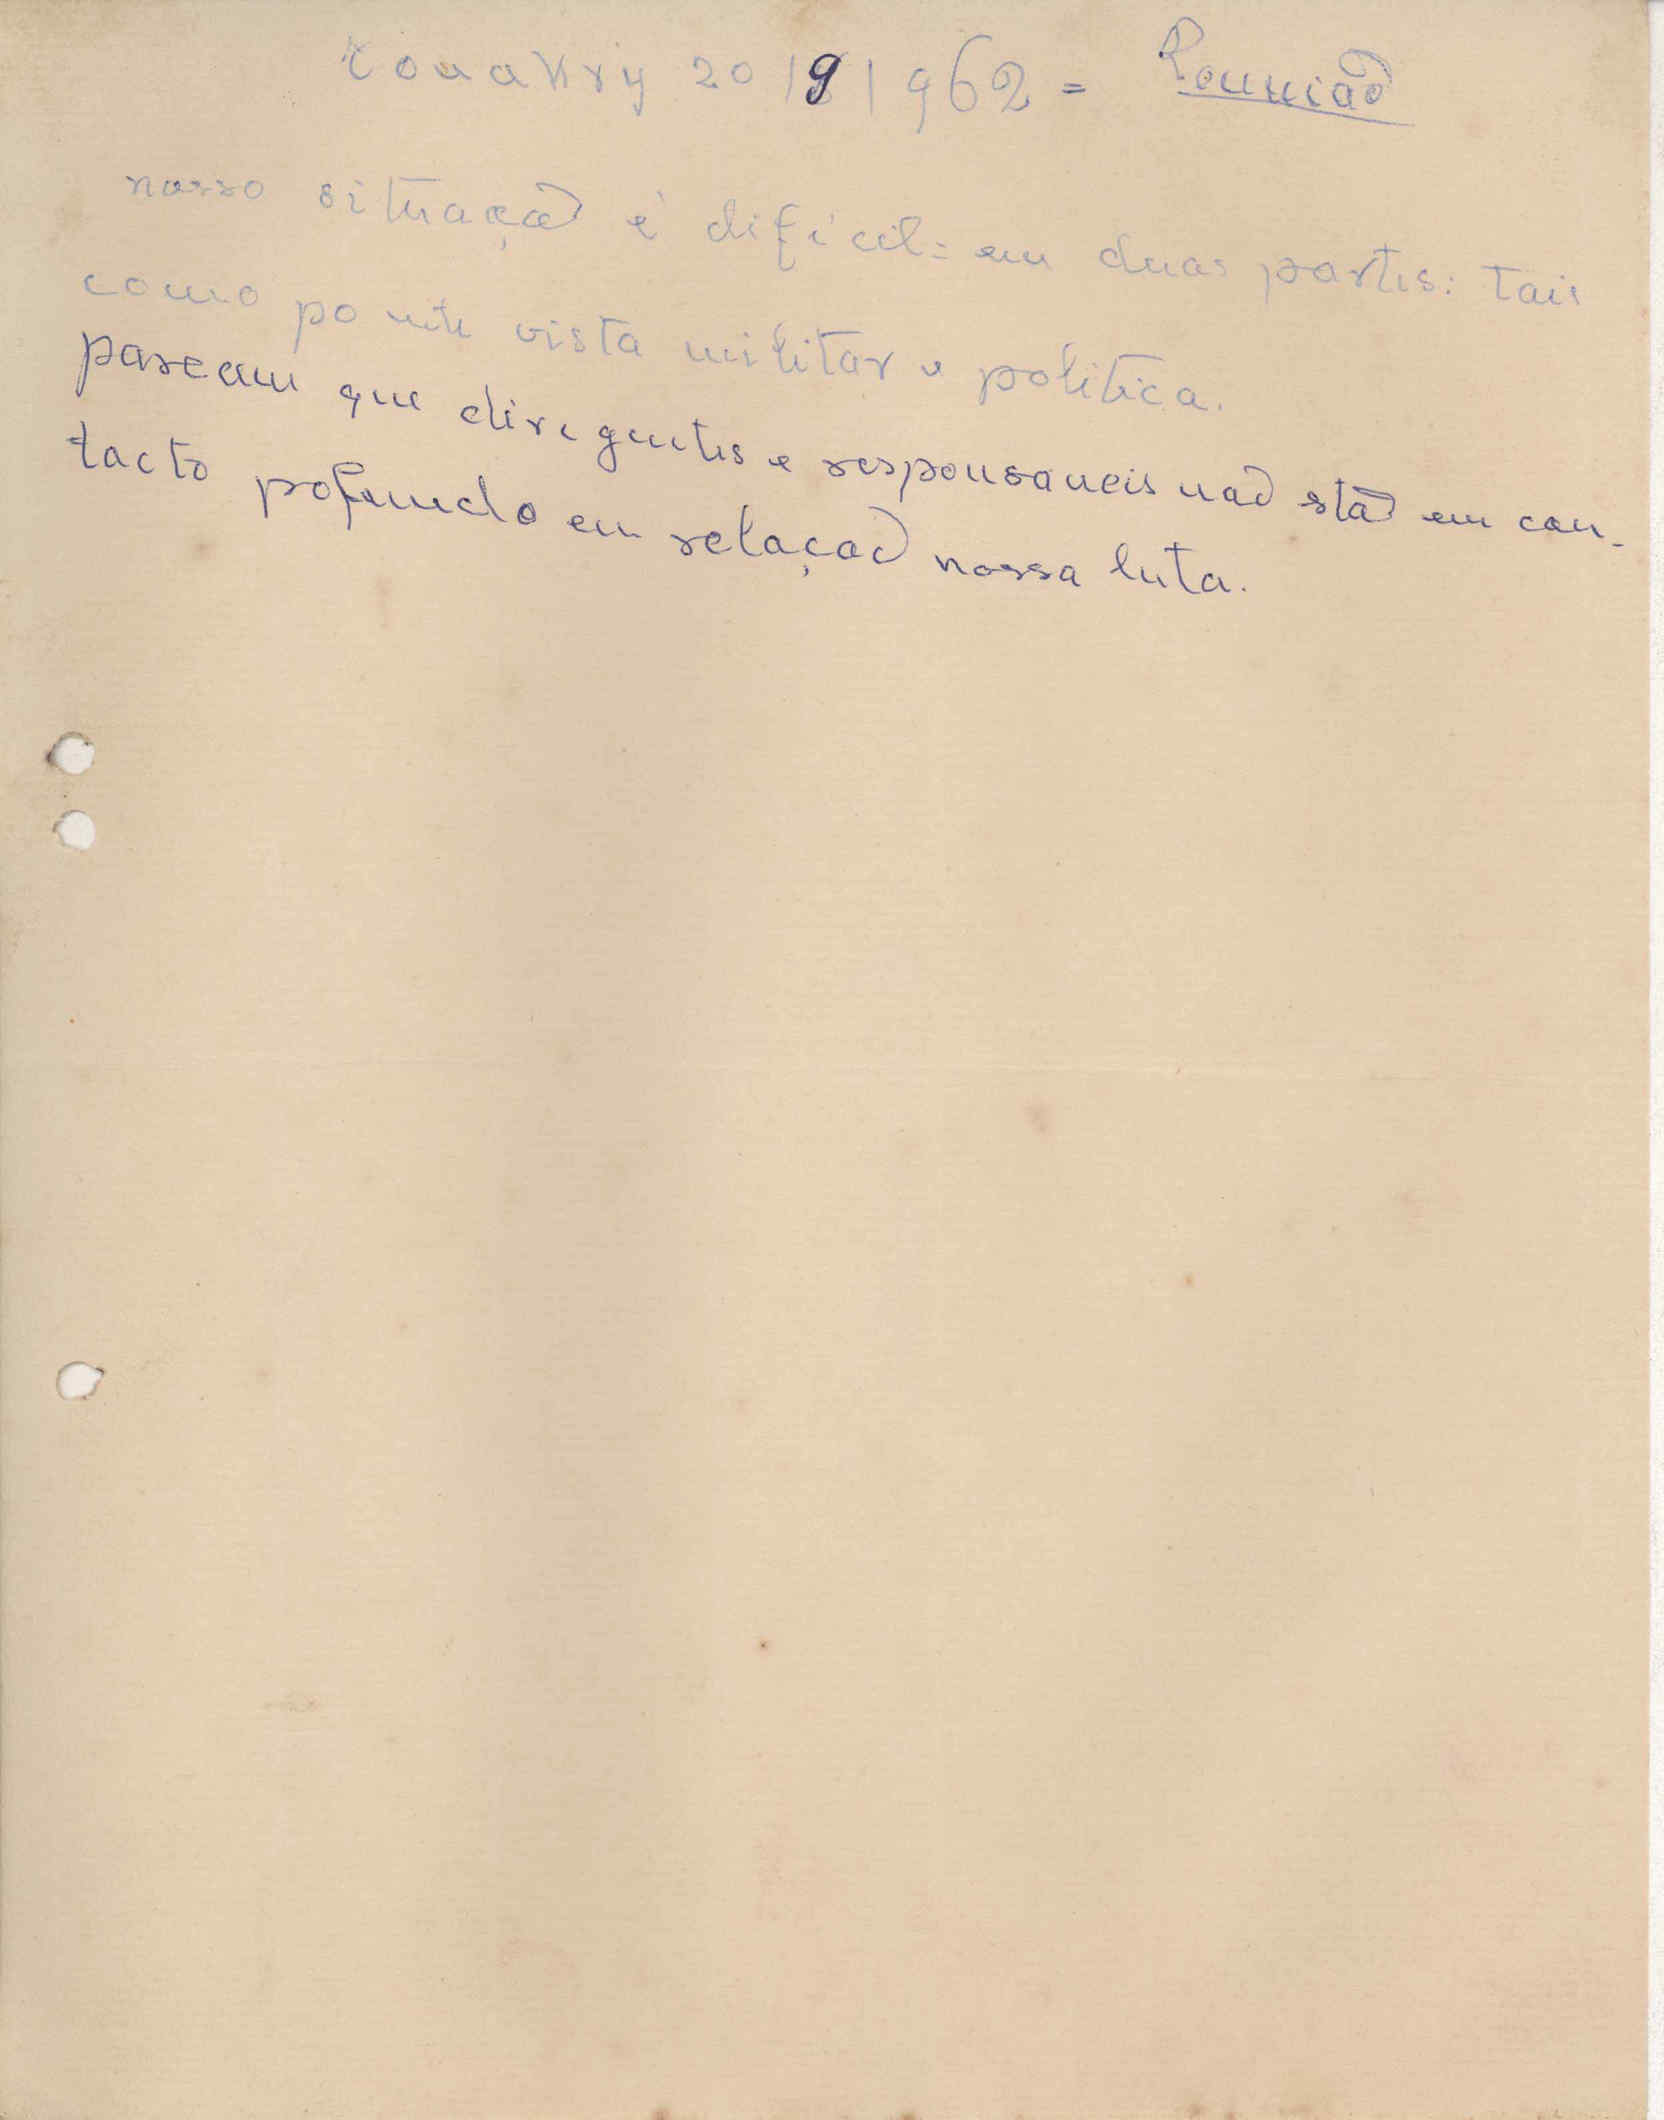 Conakry 20/9/962 = Reunião
nosso situação é dificil = em duas partes: Tais
como ponte vista militar e politica.
pareceam que diregentes e responsaveis não stão em con-
tacto pofundo em relação nossa luta.